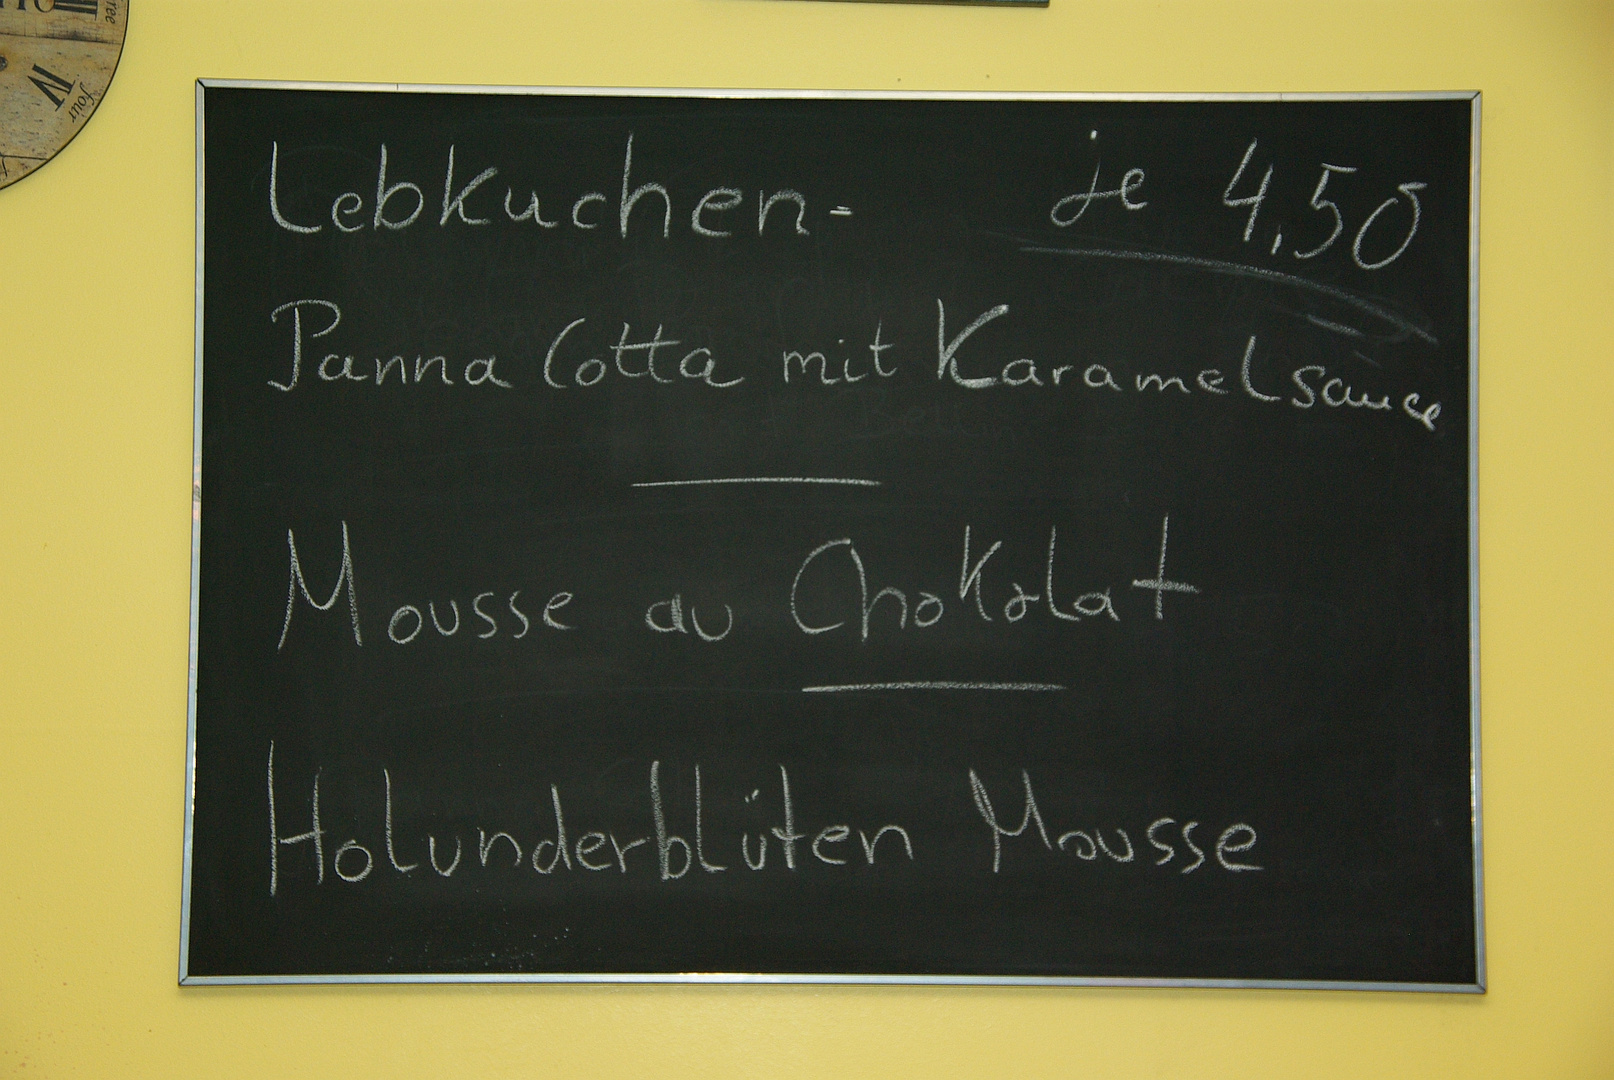 Lebkuchen- je 4,50
Panna Cotta mit Karamelsauce
Mousse au Chokolat
Holunderblüten Mousse
III
ree
IV
four